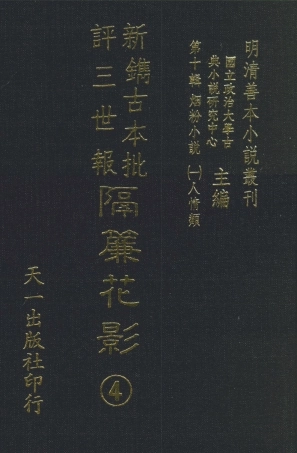 明清善本小說叢刊
國立政治大學古
典小說研究中心
主編
第十輯 烟粉小說 ㈠人情類
新鐫古本批
評三世報
隔簾花影
④
天一出版社印行